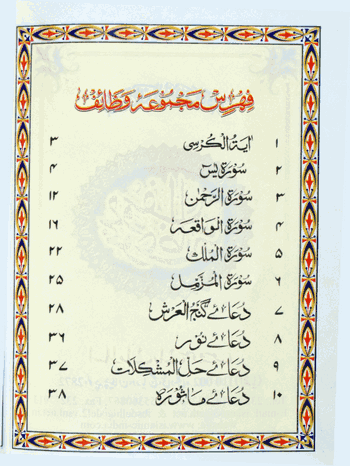 فہرس مجموعہ وظائف
۱ آیۃ الکرسی ۳
۲ سورہ یٰس ۴
۳ سورۃ الرحمٰن ۱۲
۴ سورۃ الواقعہ ۱۶
۵ سورۃ الملک ۲۲
۶ سورۃ المزمل ۲۵
۷ دعائے گنج العرش ۲۸
۸ دعائے نور ۳۶
۹ دعائے حل المشکلات ۳۷
۱۰ دعائے ماثورہ ۳۸